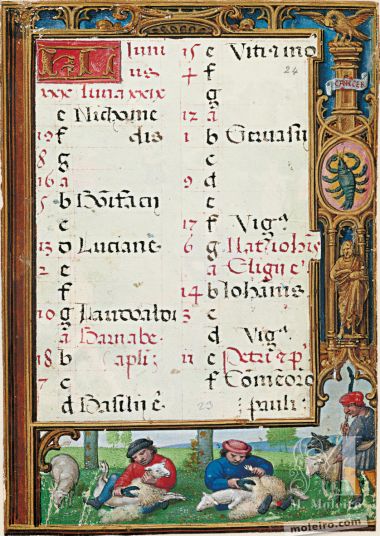 KL Iuni
us
xxx luna xxix
e Nichome
19 f dis
8 g
16 a
5 b Bonifacii
c
13 d Luciane
2 e
f
10 g Landoaldi
a Barnabe
18 b apli
7 c
d Basilii e
15 e Viti mo
4 f
24
g
12 a
1 b Gervasii
c
9 d
e
17 f Vigᵃ
6 g Iohis
a Eligii e
14 b Iohanis
3 c
d Vigᵃ
11 e Petri p
f Comemoro
pauli
23
CANCER
M. Moleiro
moleiro.com